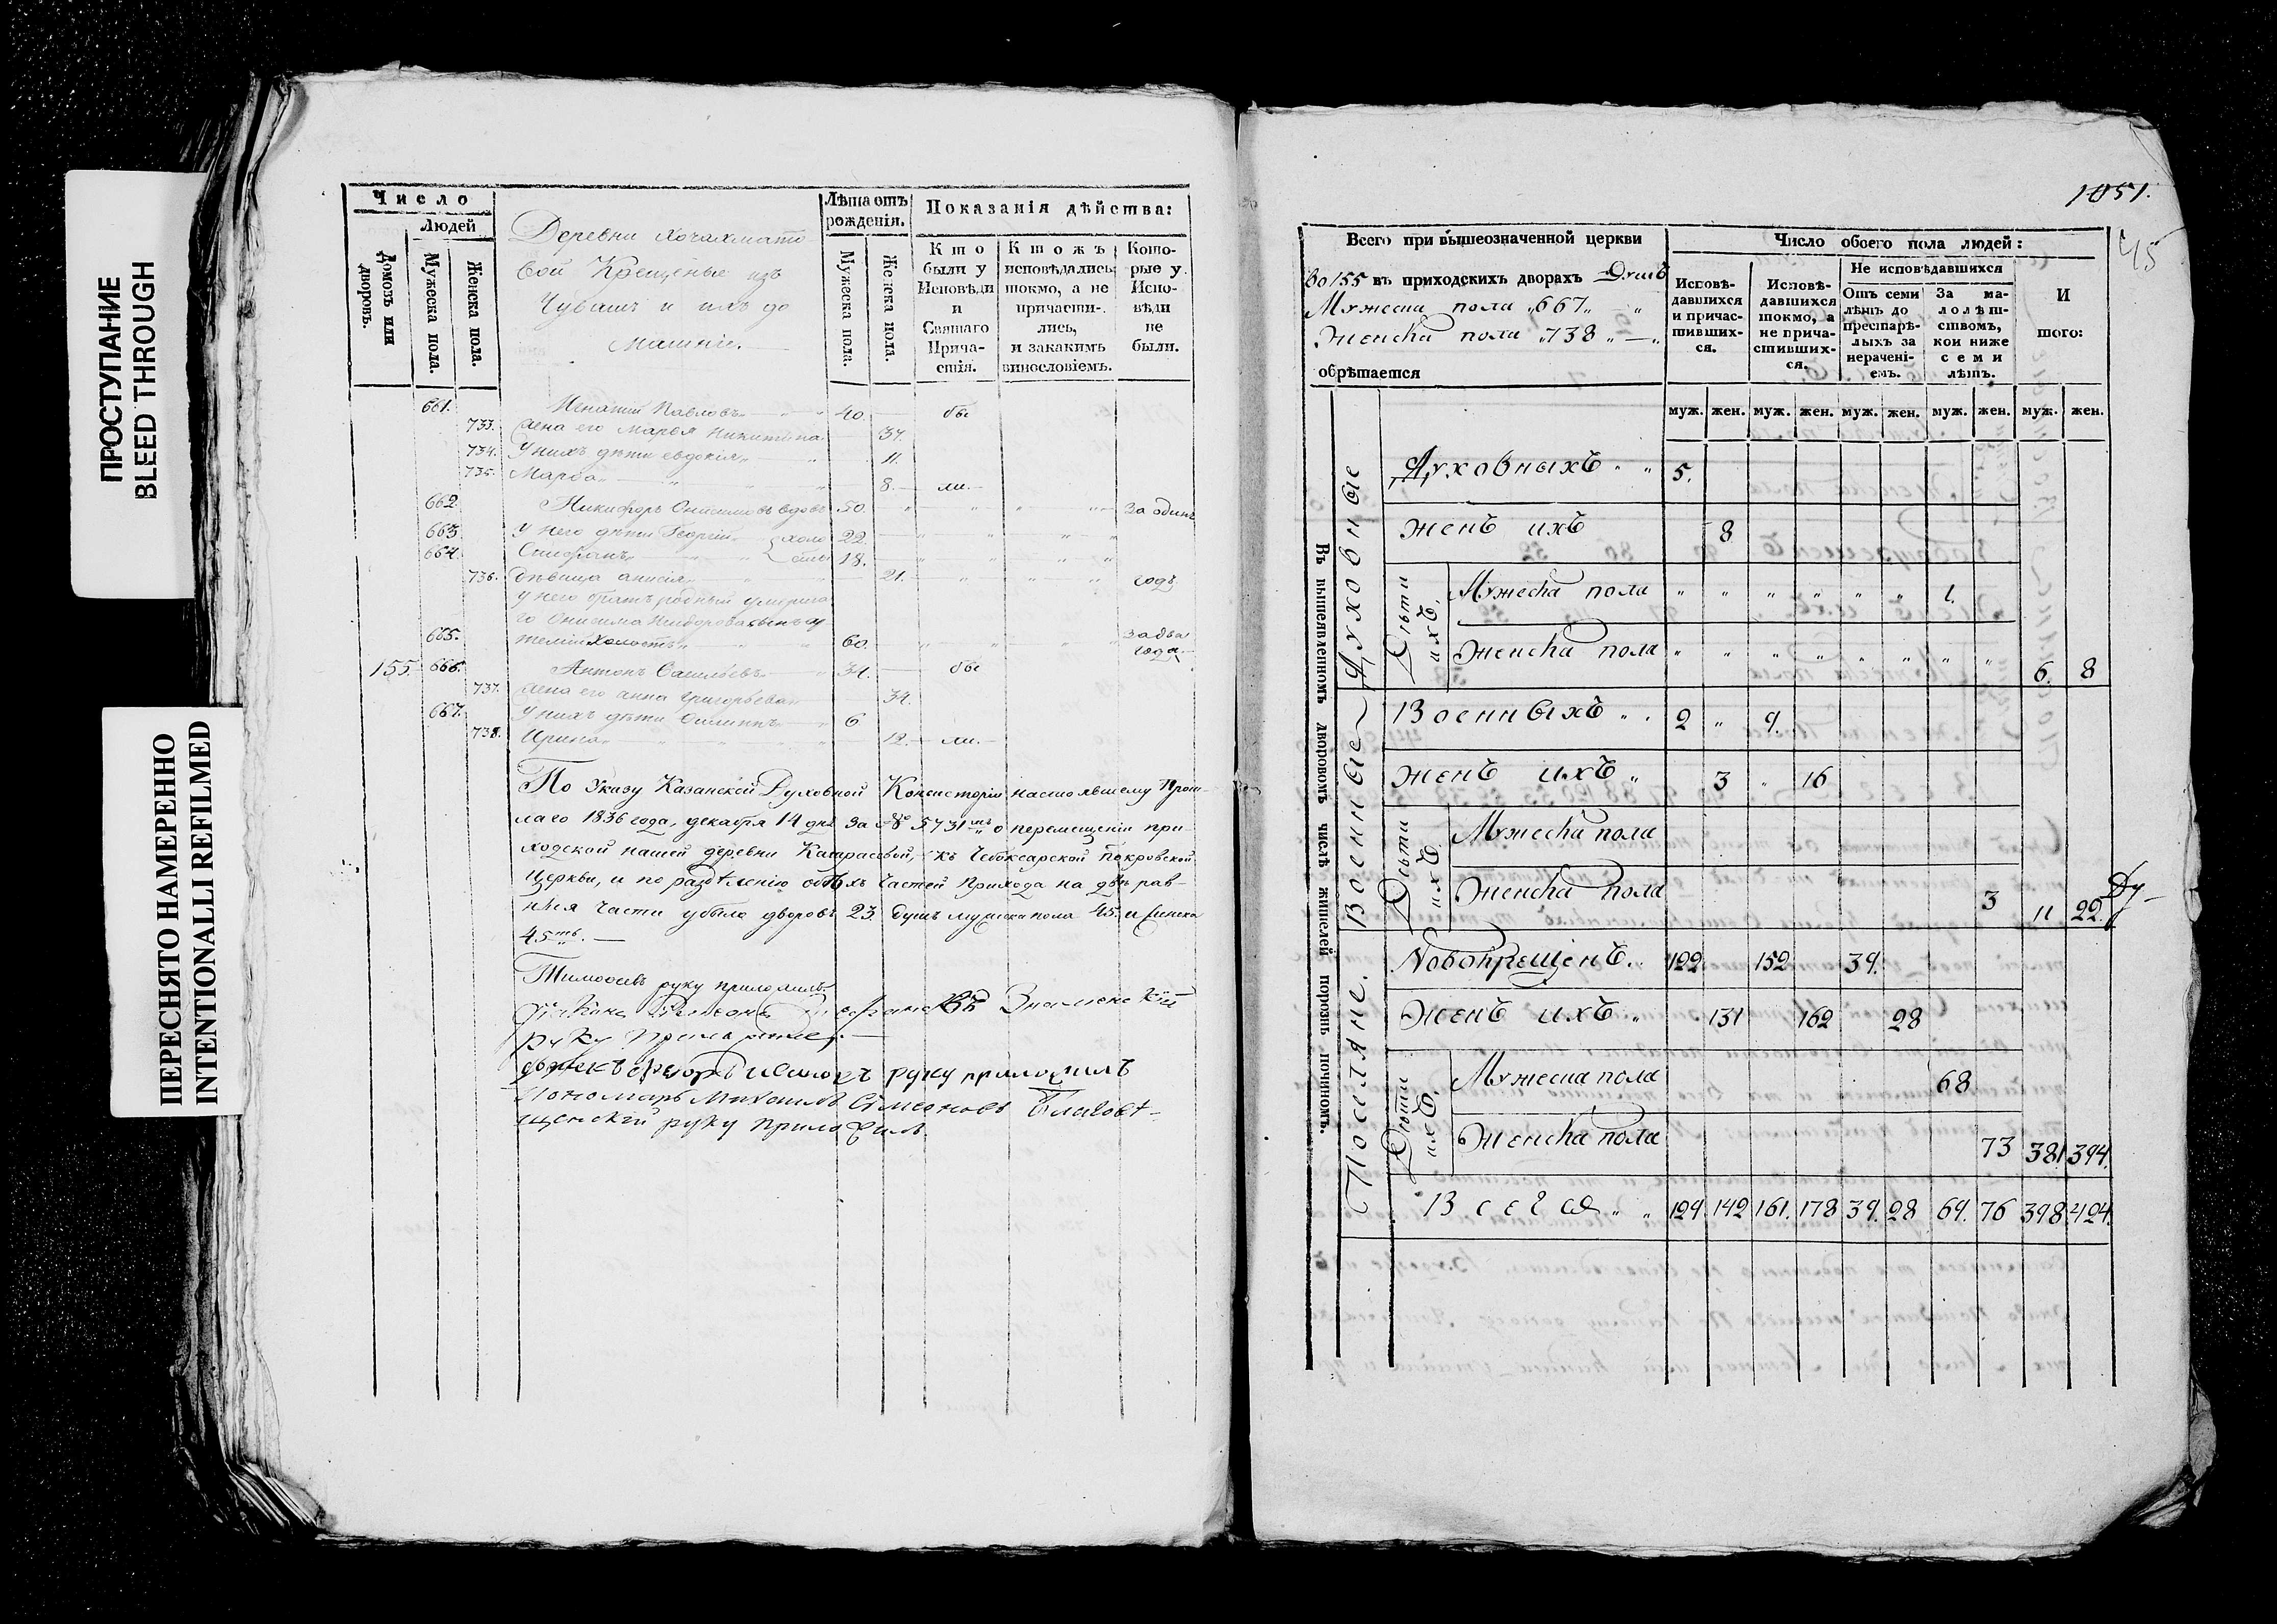 ПРОСТУПАНИЕ
BLEED THROUGH
ПЕРЕСНЯТО НАМЕРЕННО
INTENTIONALLI REFILMED
Число
Людей
Домовъ или дворовъ.
Мужеска пола.
Женска пола.
Деревни Кочахмато
вой Крещеные изъ
Чувашъ и ихъ до
машніи.
Лѣта отъ рожденія.
Мужеска пола.
Женска пола.
Показанія дѣйства:
Кто были у Исповѣди и Святаго Причастія.
Ктожъ исповѣдались токмо, а не причастились, и закакимъ винословіемъ.
Которые у Исповѣди не были.
661. Игнатій Павловъ 40. бы
733. Жена его Марья Никитина 37.
734. У нихъ дѣти Евдокія 11.
735. Марѳа 8. ли.
662. Никифоръ Онисимовъ вдовъ 50. За одинъ
663. У него дѣти Георгій холо 22.
664. сты 18.
736. Дѣвица Анисія 21. годъ
У него братъ родный умершаго
го Онисима
665. Холостъ 60. За два года
155. 666. Антонъ Васильевъ 34. бы
737. Жена его Анна Григорьева 34.
667. У нихъ дѣти Филиппъ 6
738. Ирина 12. ли.
По Указу Казанской Духовной Консисторіи настоявшему Прош-
лаго 1836 года, декабря 14 дня за № 5731мъ о перемещеніи при-
ходской нашей деревни Катрасевой, къ Чебоксарской Покровской
Церкви, и по раздѣленію обѣихъ частей Прихода на двѣ рав-
ныя части убыло дворовъ 23. душъ мужска пола 45. и женска
45ть. —
Тимофеевъ руку приложилъ
Знаменскій
руку приложилъ.
руку приложилъ
Пономарь Михаилъ Симеоновъ Благовѣ-
щенскій руку приложилъ.
1051.
45
Всего при вышеозначенной церкви
во 155 въ приходскихъ дворахъ Душъ
Мужеска пола „667„ „
Женска пола „738„ — „
обрѣтается
Число обоего пола людей:
Исповѣдавшихся и причастившихся.
Исповѣдавшихся токмо, а не причастившихся.
Не исповѣдавшихся
Отъ семи лѣтъ до престарѣлыхъ за нерачені-емъ.
За малолѣтствомъ, кои ниже семи лѣтъ.
И того:
муж. жен. муж. жен. муж. жен. муж. жен. муж. жен.
Въ вышеявленномъ дворовомъ числѣ жителей порознь починомъ.
Духовные
Духовныхъ „ „ 5.
Женъ ихъ 8
Дѣти ихъ.
Мужеска пола „ „ „ „ „ „ 1.
Женска пола „ „ „ „ „ „ „ „ 6. 8
Военные
Военныхъ „ . 2 „ 9.
Женъ ихъ „ 3 „ 16
Дѣти ихъ.
Мужеска пола
Женска пола 3 11 22.
Ду-
Поселяне.
Новокрещенъ. „ 122 152 39.
Женъ ихъ „ 131 162 28
Дѣти ихъ.
Мужеска пола 68
Женска пола 73 381 394.
Всего „ „ 129. 142 161. 178 39. 28 69. 76 398 424.